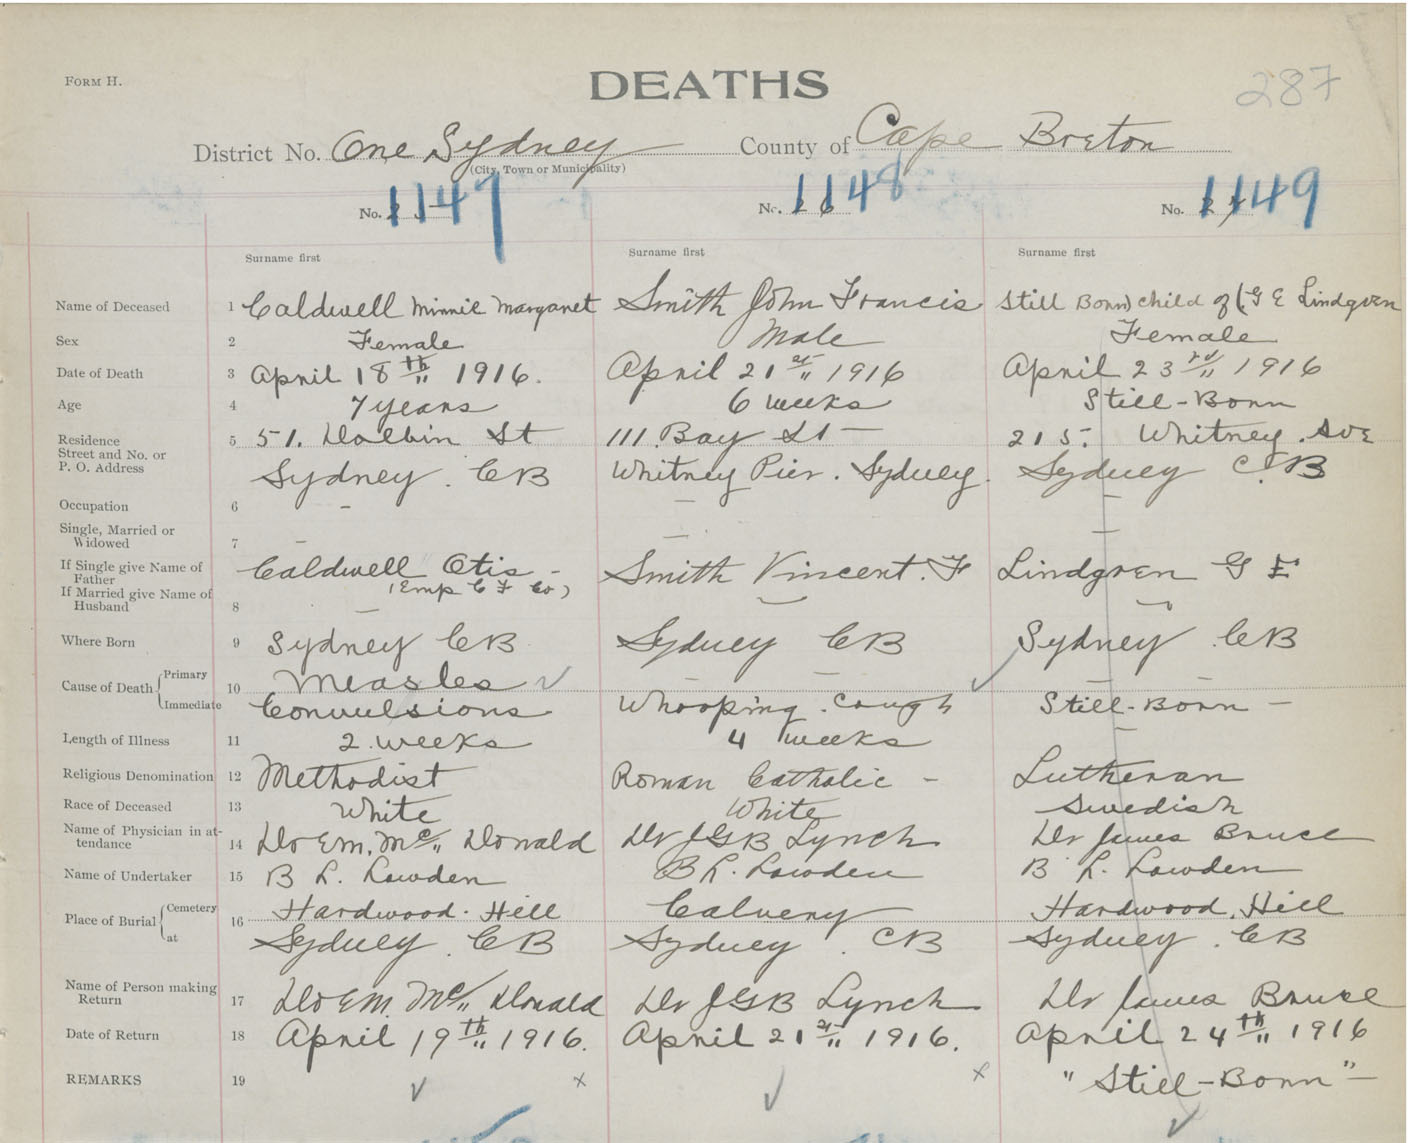 FORM H.
DEATHS
287
District No. One Sydney County of Cape Breton
(City, Town or Municipality)
No. 25 1147 No. 26 1148 No. 27 1149
Surname first Surname first Surname first
Name of Deceased 1 Caldwell Minnie Margaret Smith John Francis Still Born) child of (G E Lindgren
Sex 2 Female Male Female
Date of Death 3 April 18th 1916. April 21st 1916 April 23rd 1916
Age 4 7 years 6 weeks Still-Born
Residence Street and No. or P. O. Address 5 51. Dolbin St 111. Bay St – 215. Whitney. Ave
Sydney. CB Whitney Pier. Sydney. Sydney C.B
Occupation 6 - – –
Single, Married or Widowed 7 - – –
If Single give Name of Father Caldwell Otis - Smith Vincent. F Lindgren G E
(Emp C F Co)
If Married give Name of Husband 8 –
Where Born 9 Sydney CB Sydney CB Sydney. CB
Cause of Death Primary 10 Measles ✓ – – ✓ – –
Immediate Convulsions Whooping. Cough Still-Born –
Length of Illness 11 2. weeks 4 weeks –
Religious Denomination 12 Methodist Roman Catholic – Lutheran
Race of Deceased 13 White White Swedish
Name of Physician in attendance 14 Dr E M. Mc Donald Dr J G B Lynch Dr James Bruce
Name of Undertaker 15 B L. Lowden B L. Lowden B L. Lowden
Place of Burial Cemetery 16 Hardwood. Hill Calvery Hardwood. Hill
at Sydney. CB Sydney. CB Sydney. CB
Name of Person making Return 17 Dr E M. Mc Donald Dr J G B Lynch Dr James Bruce
Date of Return 18 April 19th 1916. April 21st 1916. April 24th 1916
REMARKS 19 ✓ x ✓ x "Still-Born" –
✓